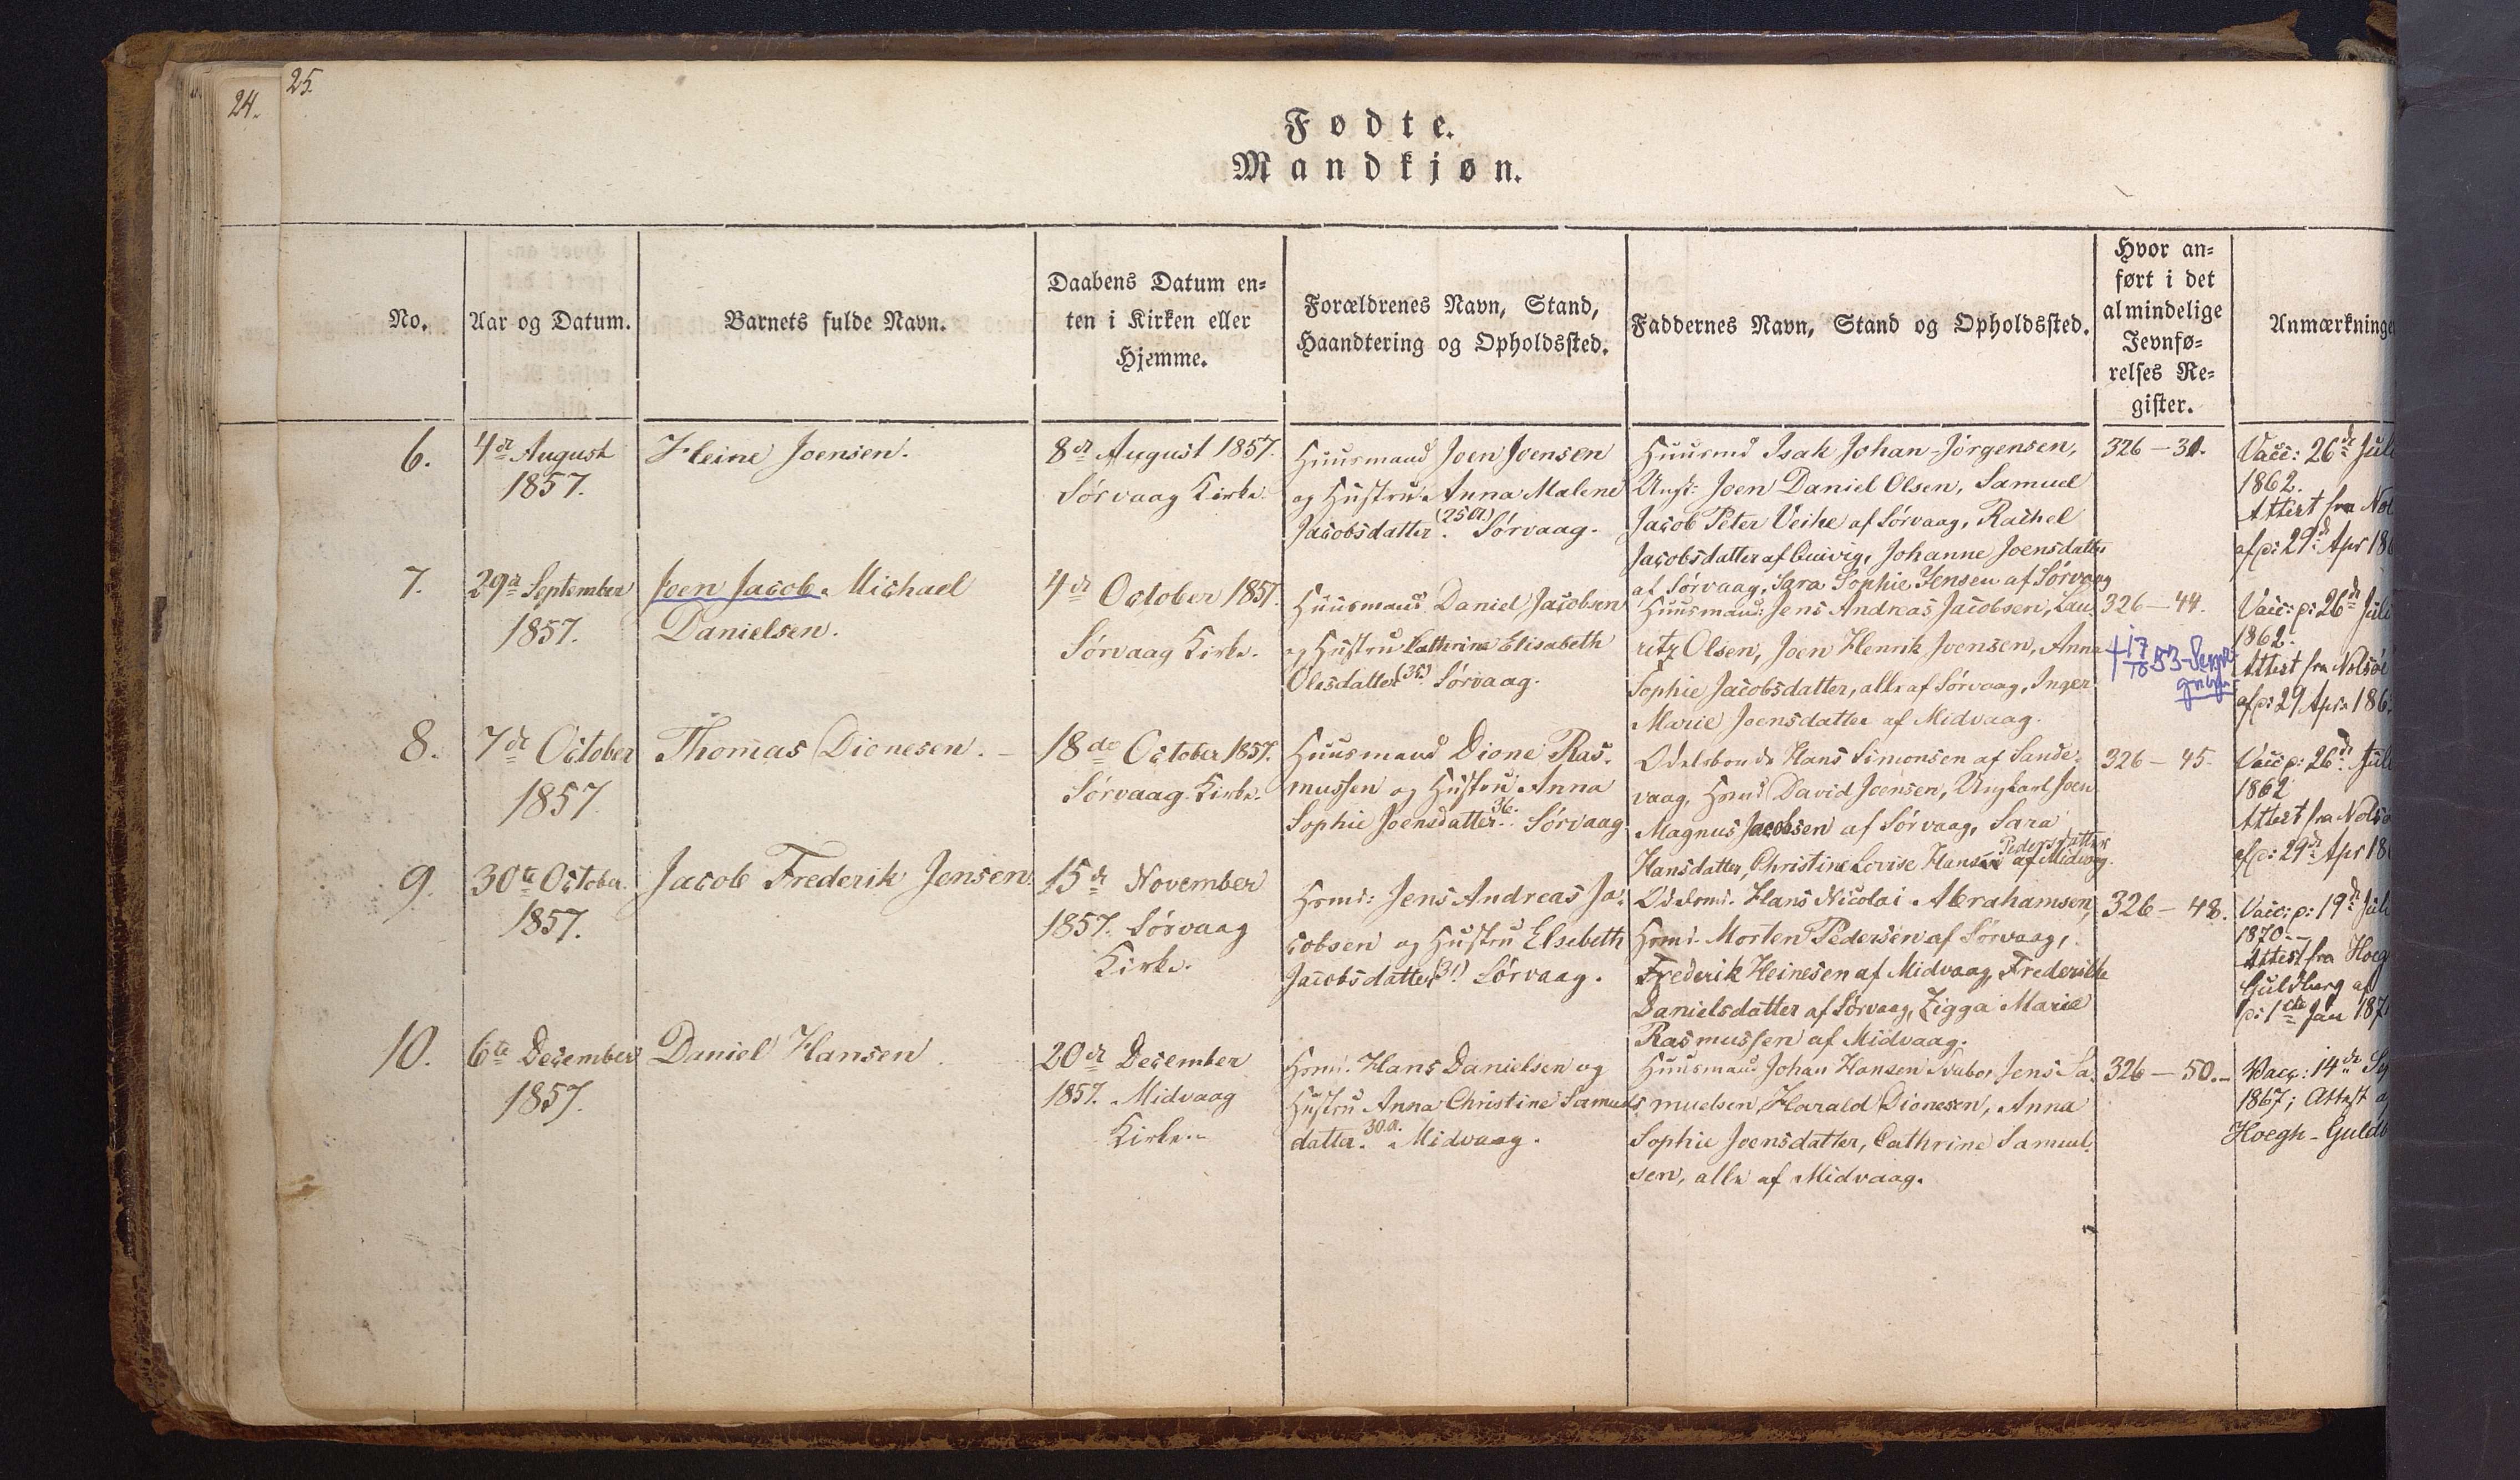 24.
25.
Fødte.
Mandkjøn.
No.
Aar og Datum.
Barnets fulde Navn.
Daabens Datum en=
ten i Kirken eller
Hjemme.
Forældrenes Navn, Stand,
Haandtering og Opholdssted.
Faddernes Navn, Stand og Opholdssted.
Hvor an=
ført i det
almindelige
Jevnfø=
relses Re=
gister.
Anmærkninge
6.
4de August
1857.
Heine Joensen.
8de August 1857.
Sørvaag Kirke.
Huusmand Joen Joensen
og Hustru Anna Malene
Jacobsdatter (25 a.) Sørvaag.
Huusmd Isak Johan Jørgensen,
Ungk: Joen Daniel Olsen, Samuel
Jacob Peter Veihe af Sørvaag, Rachel
Jacobsdatter af Qvivig, Johanne Joensdatter
af Sørvaag, Sara Sophie Jensen af Sørvaag
326 — 31.
Vacc: 26de Juli
1862.
Attest fra Nol
af d: 29de Apr 186
7.
29de September
1857.
Joen Jacob Michael
Danielsen.
4de October 1857.
Sørvaag Kirke.
Huusmand Daniel Jacobsen
og Hustru Cathrine Elisabeth
Olesdatter (35) Sørvaag.
Huusmand: Jens Andreas Jacobsen, Lau-
ritz Olsen, Joen Henrik Joensen, Anna
Sophie Jacobsdatter, alle af Sørvaag, Inger
Marie Joensdatter af Midvaag.
326 — 44.
† 17/10 53
Vacc: d: 26de Juli
1862.
Attest fra Nolsøe
af d: 29 Apr. 186
8.
7de October
1857
Thomas Dionesen. —
18de October 1857.
Sørvaag Kirke.
Huusmand Dione Ras-
mussen og Hustru Anna
Sophie Joensdatter 36. Sørvaag
Odelsbonde Hans Simonsen af Sande-
vaag, Hsmd David Joensen, Ungkarl Joen
Magnus Jacobsen af Sørvaag, Sara
Hansdatter, Christine Lovise Hansen Pedersdatter af Midvaag.
326 — 45.
Vacc d: 26de Juli
1862
Attest fra Nolsø
af d: 29de Apr 18
9.
30te October
1857.
Jacob Frederik Jensen
15de November
1857. Sørvaag
Kirke.
Hsmd: Jens Andreas Ja-
cobsen og Hustru Elsebeth
Jacobsdatter (31) Sørvaag.
Odelsmd. Hans Nicolai Abrahamsen,
Hsmd. Morten Pedersen af Sørvaag,
Frederik Heinesen af Midvaag, Frederikke
Danielsdatter af Sørvaag, Zigga Marie
Rasmussen af Midvaag.
326 — 48.
Vacc: d: 19de Juli
1870.—
Attest fra Hoeg
Guldberg af
d: 1ste Jan 187
10.
6te December
1857.
Daniel Hansen
20de December
1857. Midvaag
Kirke.
Hsmd. Hans Danielsen og
Hustru Anna Christine Samuels
datter. 30 a. Midvaag.
Huusmand Johan Hansen Svabo, Jens Sa-
muelsen, Harald Dionesen, Anna
Sophie Joensdatter, Cathrine Samuel-
sen, alle af Midvaag.
326 — 50.—
Vacc: 14de Se
1867; Attest a
Hoegh-Guldb